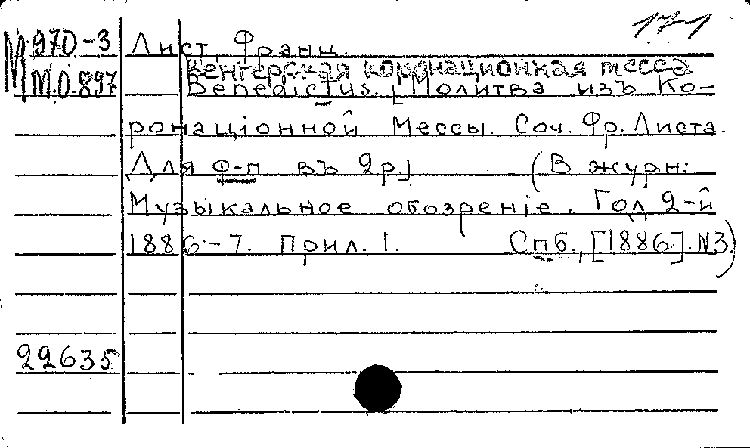 171
М 970-3 Лист, Франц.
М.О.897 Венгерская коронационная месса
Benedictus. [Молитва изъ Ко-
ронаціонной Мессы. Соч. Фр. Листа.
Для ф-п въ 2р.] (В журн:
Музыкальное обозреніе. Год 2-й
1886-7. Прил. 1. Спб., [1886]. N3)
22635